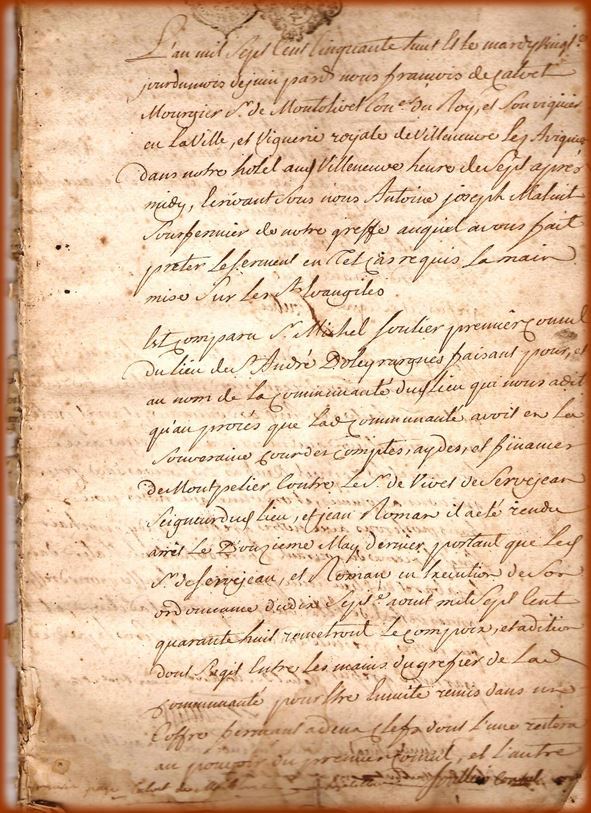 L'an mil Sept Cent Cinquante huit & le mardy vingt.e
jour du mois de juin pard nous francois de calvet
Mourgier Sr. de Montolivet Con.er du Roy, et Son viguier
en La Ville, et Viguerie royale de Villeneuve Les Avignon
dans notre hotel aud Villeneuve heure de Sept après
midy, Ecrivant Sous nous Antoine joseph
Sousfermier de notre greffe auquel avons fait
preter Le Serment en tel cas requis La main
mise Sur Les Sts. Evangiles
Est Comparu Sr. Michel Soulier premier Consul
du Lieu de St. André Doleyrargues faisant pour, et
au nom de La Communauté dud Lieu qui nous a dit
qu'au procés que Lad Communauté avoit en La
Souveraine Cour des Comptes, aydes, et finances
de Montpelier Contre Le Sr. de Vivet de Servejean
Seigneur dud Lieu, et jean Roman il a été rendu
arrêt Le Douzieme May dernier, portant que Les
Srs. de Servejean, et Roman en Execution de Son
ordonnance dudix Sept.e aout mil Sept Cent
quarante huit remetront Le Compoix, et adition
dont Sagit Entre Les mains du grefier de Lad
Communauté pour Etre Ensuite remis dans un
Coffre fermant a deux Clefs dont L'une restera
au pouvoir du premier Consul, et L'autre
page Calvet de Soullier Consul